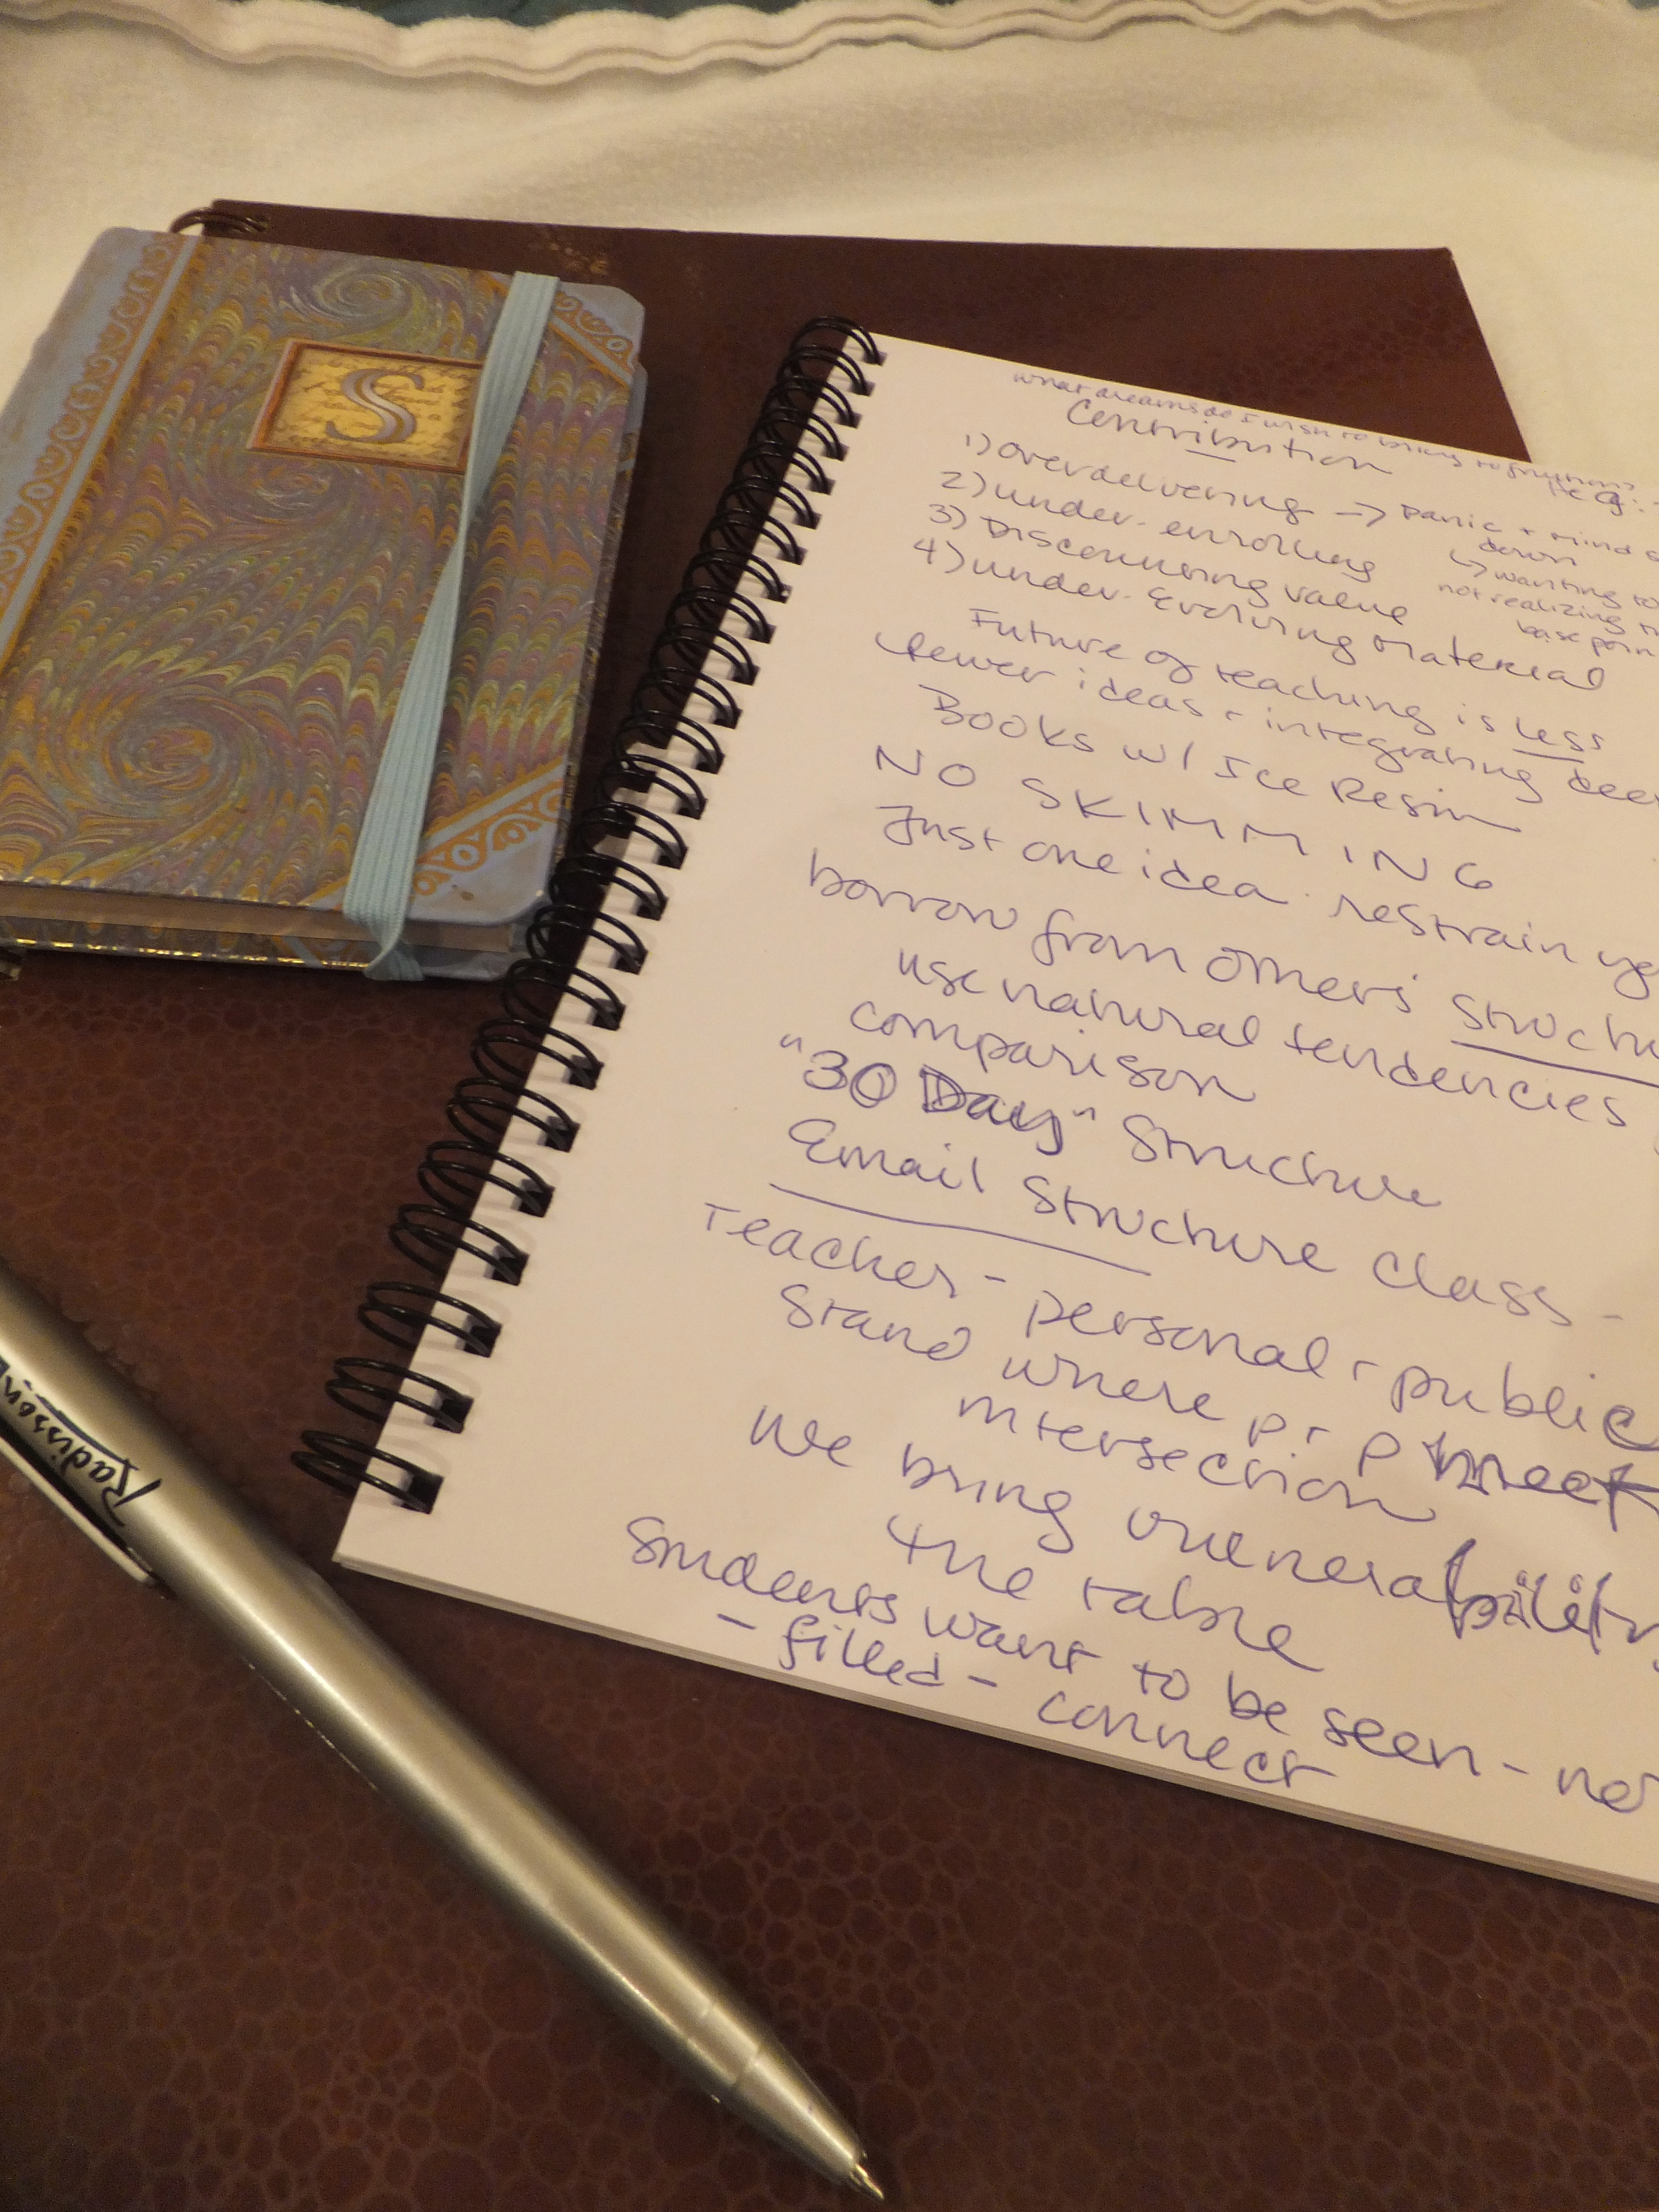 S
what dreams do I wish to bring to fruition?
Contribution
1) overdelivering → panic + mind
down
2) under-enrolling ↳ wanting to
3) Discounting value not realizing
base
4) under-Evolving material
Future of teaching is less
fewer ideas + integrating
Books w/ Ice Resin
NO SKIMMING
Just one idea. restrain
borrow from others'
use natural tendencies
comparison
"30 Day" Structure
Email Structure class -
Teacher - personal + public
Stand where p + p meet
intersection
We bring vulnerability
the table
Students want to be seen - not
- filled - connect
Radisson